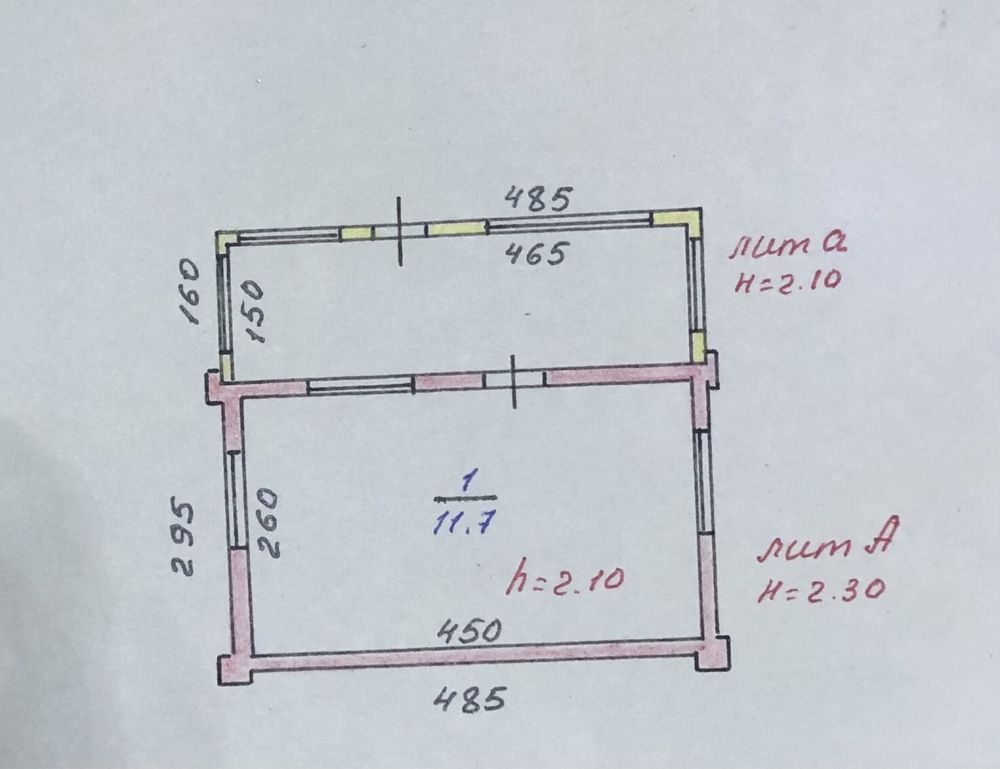 485
465
160
150
лит а
H=2.10
1
11.7
295
260
h=2.10
лит А
H=2.30
450
485